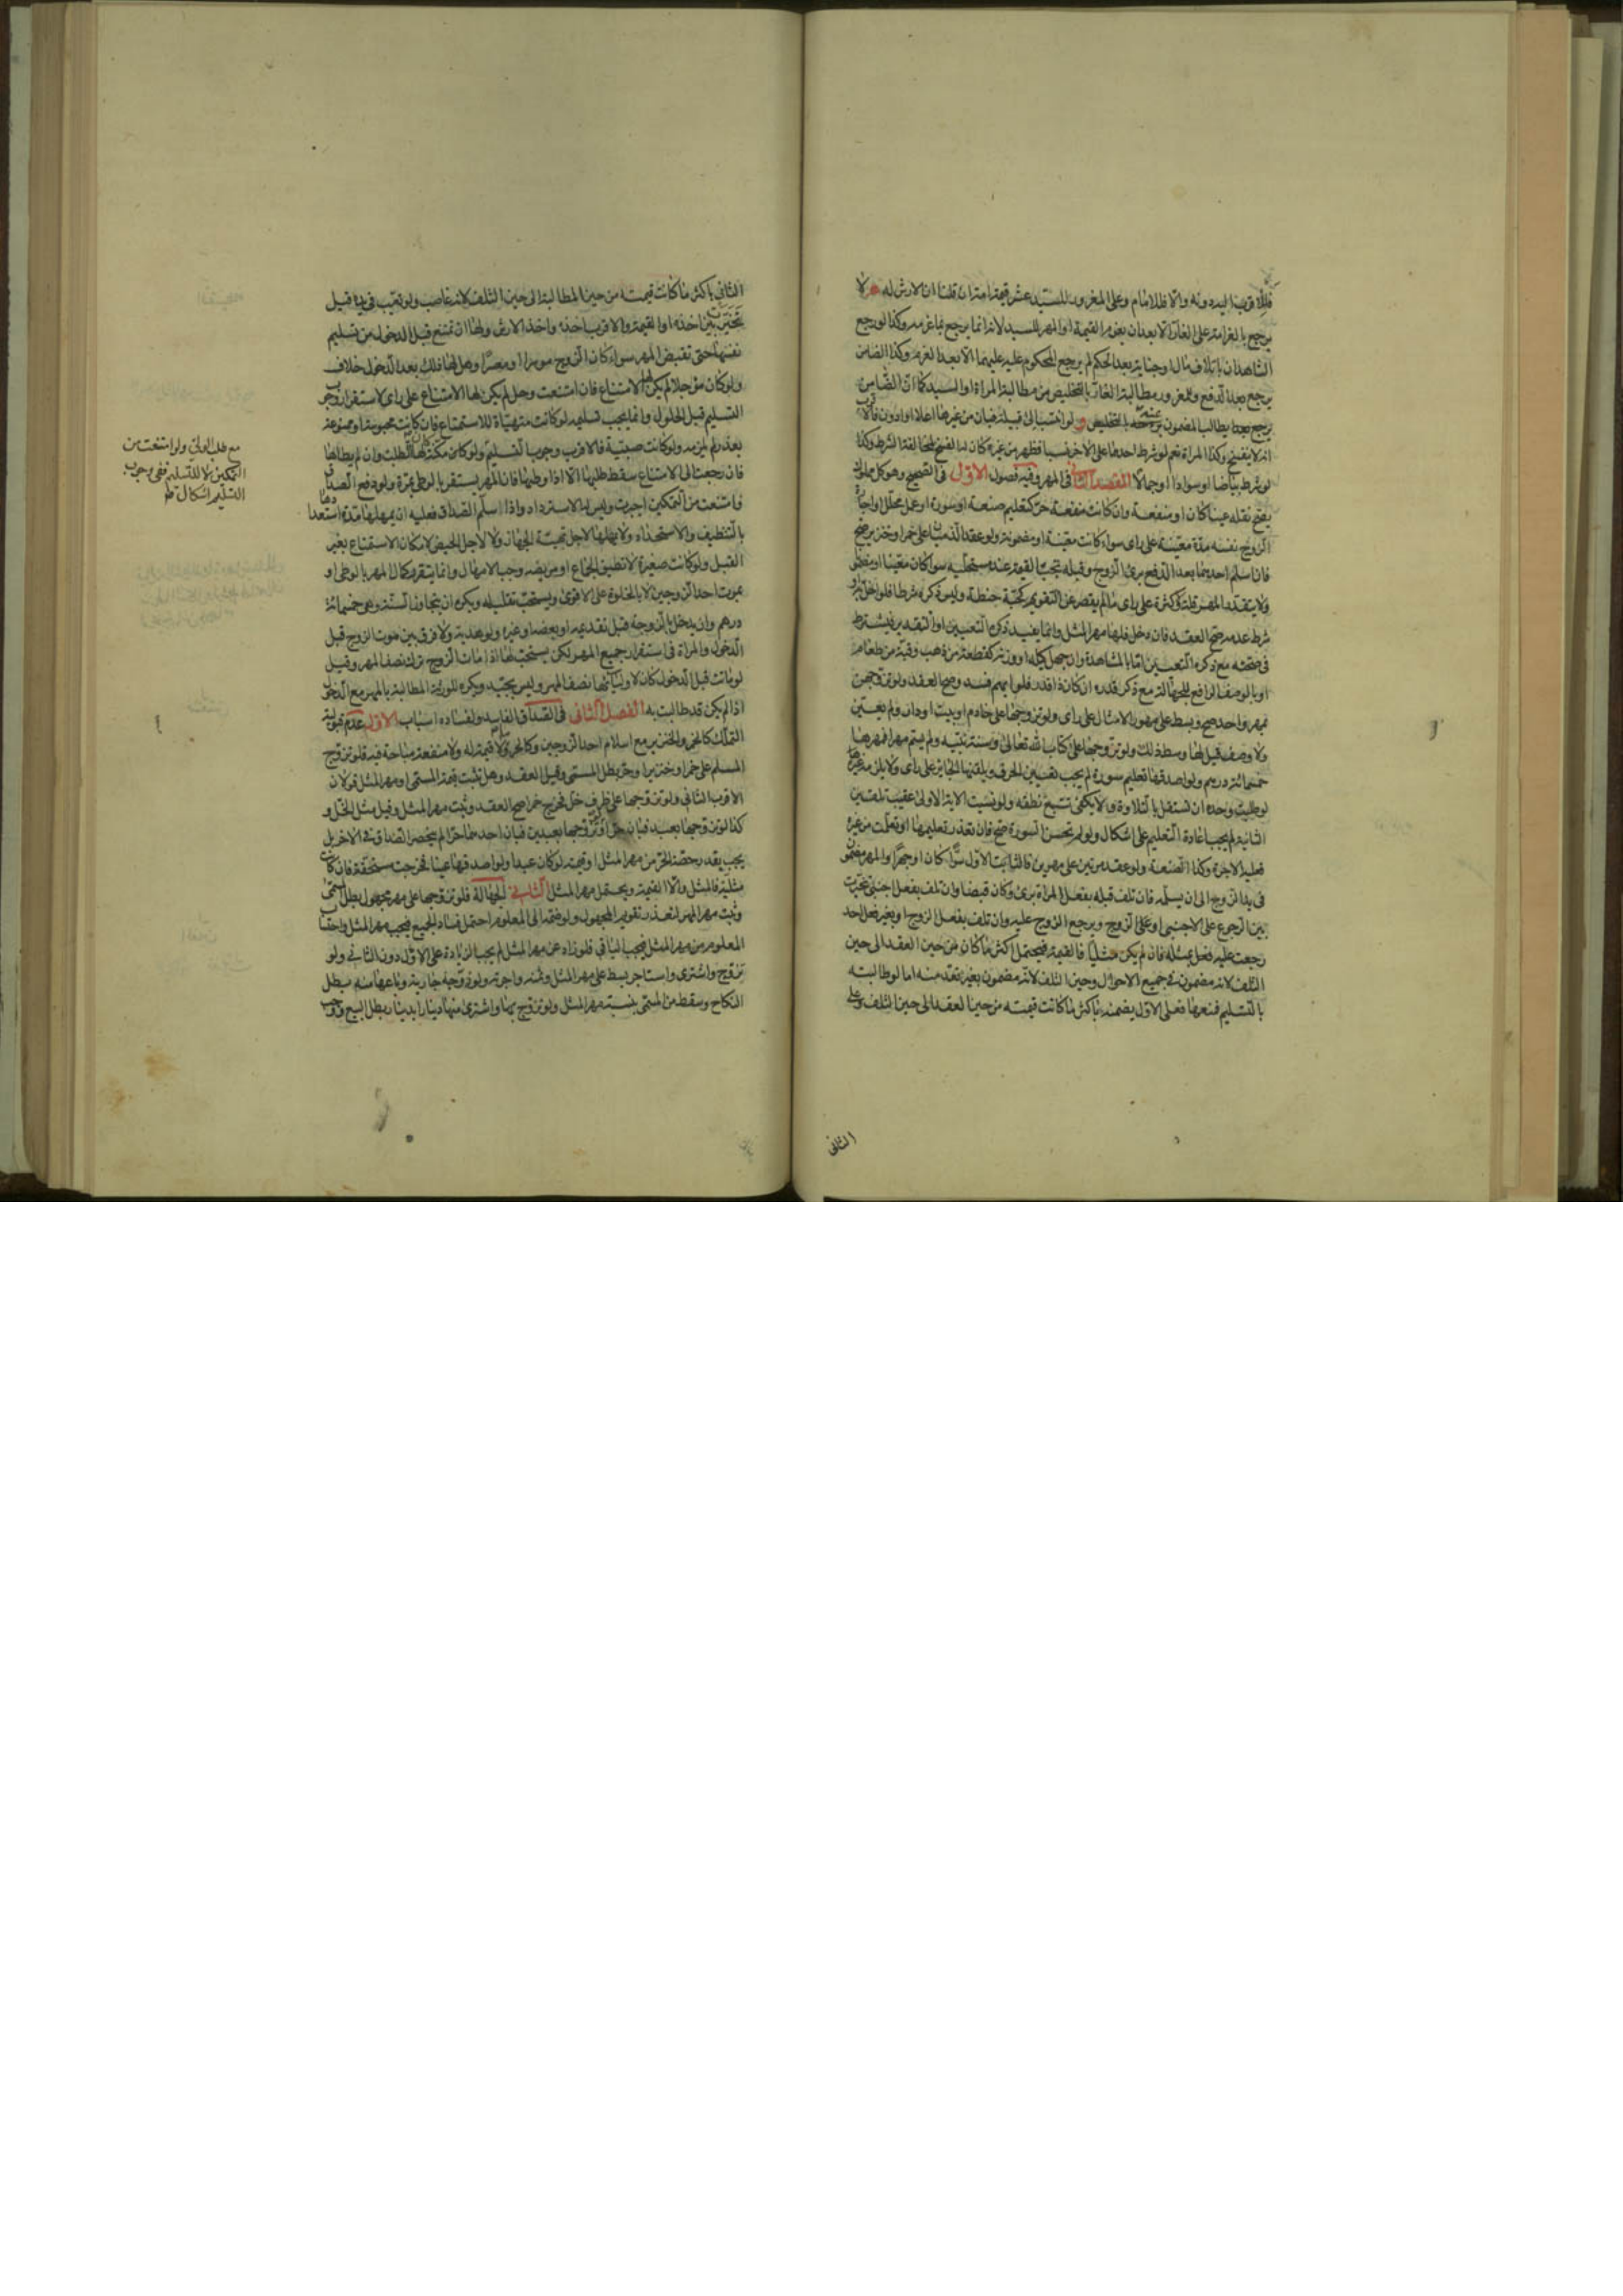 يرجع بالغرامة على الغار الا بعد ان يغرم القيمة او المهر للسيد لانه انما يرجع بما غرمه وكذا لو رجع
الشاهدان باتلاف مال او جناية بعد الحكم لم يرجع المحكوم عليه عليهما الا بعد الغرم وكذا الضامن
يرجع بعد الدفع وللمغرور مطالبة الغار بالتخليص من مطالبة المراة او السيد كما ان الضامن
انه لا يفسخ وكذا المراة نعم لو شرط احدهما على الاخر نسبا فظهر من غيره كان له الفسخ لمخالفة الشرط وكذا
لو شرط بياضا او سوادا او جمالا المقصد الثاني في المهر وفيه فصول الاول في الصحيح وهو كل مملوك
يصح نقله عينا كان او منفعة وان كانت منفعة حر كتعليم صنعة او سورة او عمل محلل او اجارة
الزوج نفسه مدة معينة على راى سواء كانت معينة او مضمونة ولو عقد الذميان على خمر او خنزير صح
فان اسلم احدهما بعد الدفع برئ الزوج وقبله تجب القيمة عند مستحليه سواء كان معينا او مضمونا
ولا يتقدر المهر قلة وكثرة على راى ما لم يقصر عن التقويم كحبة حنطة وليس ذكره شرطا فلو اخل به او
شرط عدمه صح العقد فان دخل فلها مهر المثل وانما يفيد ذكره التعيين او التقدير فيشترط
في صحته مع ذكره التعيين اما بالمشاهدة وان جهل كيله او وزنه كقطعة من ذهب وقبة من طعام
او بالوصف الرافع للجهالة مع ذكر قدره ان كان ذا قدر فلو ابهم فسد وصح العقد ولو تزوجهن
بمهر واحد صح وبسط على مهور الامثال على راى ولو تزوجها على خادم او بيت او دار ولم يعين
ولا وصف قيل لها وسط ذلك ولو تزوجها على كتاب الله تعالى وسنة نبيه ولم يسم مهرا فمهرها
خمسمائة درهم ولو اصدقها تعليم سورة لم يجب تعيين الحرف ويلقنها الجايز على راى ولا يلزمه غيرها
لو طلبت وحده ان تستقل بالتلاوة ولا يكفي تتبع نطقه ولو نسيت الاية الاولى عقيب تلقين
الثانية لم يجب اعادة التعليم على اشكال ولو لم يحسن السورة صح فان تعذر تعليمها او تعلمت من غيره
فعليه الاجرة وكذا الصنعة ولو عقد مرتين على مهرين فالثابت الاول سرا كان او جهرا والمهر مضمون
في يد الزوج الى ان يسلمه فان تلف قبله بفعل المراة برئ وكان قبضا وان تلف بفعل اجنبي تخيرت
بين الرجوع على الاجنبي او على الزوج ويرجع الزوج عليه وان تلف بفعل الزوج او بغير فعل احد
رجعت عليه بمثله فان لم يكن مثليا فالقيمة فيحتمل اكثر ما كان من حين العقد الى حين
التلف لانه مضمون في جميع الاحوال وحين التلف لانه مضمون بغير تعد منه اما لو طالبته
بالتسليم فمنعها فعلى الاول يضمنه باكثر ما كانت قيمته من حين العقد الى حين التلف وعلى
الثاني
الثاني باكثر ما كانت قيمته من حين المطالبة الى حين التلف لانه غاصب ولو تعيب في يده قيل
تخيرت بين اخذه او القيمة والاقرب اخذه واخذ الارش ولها ان تمتنع قبل الدخول من تسليم
نفسها حتى تقبض المهر سواء كان الزوج موسرا او معسرا وهل لها ذلك بعد الدخول خلاف
ولو كان مؤجلا لم يكن لها الامتناع فان امتنعت وحل لم يكن لها الامتناع على راى لاستقرار وجوب
التسليم قبل الحلول وانما يجب تسليمه لو كانت متهيأة للاستمتاع فان كانت محبوسة او ممنوعة
بعذر لم يلزمه ولو كانت صبية فالاقرب وجوب التسليم
فان رجعت الى الامتناع سقط طلبها الا اذا وطئها فان المهر يستقر بالوطى مرة ولو دفع الصداق
فامتنعت من التمكين اجبرت وليس له الاسترداد واذا سلم الصداق فعليه ان يمهلها مدة استعدادها
بالتنظيف والاستحداد ولا يمهلها لاجل تهيئة الجهاز ولا لاجل الحيض لامكان الاستمتاع بغير
القبل ولو كانت صغيرة لا تطيق الجماع او مريضه وجب الامهال وانما يتقرر كمال المهر بالوطى او
بموت احد الزوجين لا بالخلوة على الاقوى ويستحب تقليله ويكره ان يتجاوز السنة وهو خمسمائة
درهم وان يدخل بالزوجة قبل تقديمه او بعضه او غيره ولو هدية ولا فرق بين موت الزوج قبل
الدخول والمراة في استقرار جميع المهر لكن يستحب لها اذا مات الزوج ترك نصف المهر وقيل
لو ماتت قبل الدخول كان لاوليائها نصف المهر وليس بجيد ويكره للورثة المطالبة بالمهر مع الدخول
اذا لم يكن قد طالبت به الفصل الثاني في الصداق الفاسد ولفساده اسباب الاول عدم قبولية
التملك كالخمر والخنزير مع اسلام احد الزوجين وكالحر ولا قيمة له ولا منفعة مباحة فيه فلو تزوج
المسلم على خمر او خنزير او حر بطل المسمى وقيل العقد وهل تثبت قيمة المسمى او مهر المثل قولان
الاقرب الثاني ولو تزوجها على ظرف خل فخرج خمرا صح العقد وثبت مهر المثل وقيل مثل الخل و
كذا لو تزوجها بعبد فبان حرا ولو تزوجها بعبدين فبان احدهما حرا لم ينحصر الصداق في الاخر بل
يجب بقدر حصة الحر من مهر المثل او قيمته لو كان عبدا ولو اصدقها عينا فخرجت مستحقة فان كانت
مثلية فالمثل والا القيمة ويحتمل مهر المثل الثاني الجهالة فلو تزوجها على مهر مجهول بطل المسمى
وثبت مهر المثل لتعذر تقويم المجهول ولو ضمه الى المعلوم احتمل فساد الجميع فيجب مهر المثل واحتساب
المعلوم من مهر المثل فيجب الباقي فلو زاد عن مهر المثل لم يجب الزيادة على الاول دون الثاني ولو
تزوج واشترى واستاجر بسط على مهر المثل وثمنه واجرته ولو زوجه جارية وباعها منه بطل
النكاح وسقط من المسمى بنسبة مهر المثل ولو تزوج بها واشترى منها دينارا بدينار بطل البيع ووجب
مع طلب الولي ولو امتنعت من
التمكين لا للتسليم ففي وجوب
التسليم اشكال